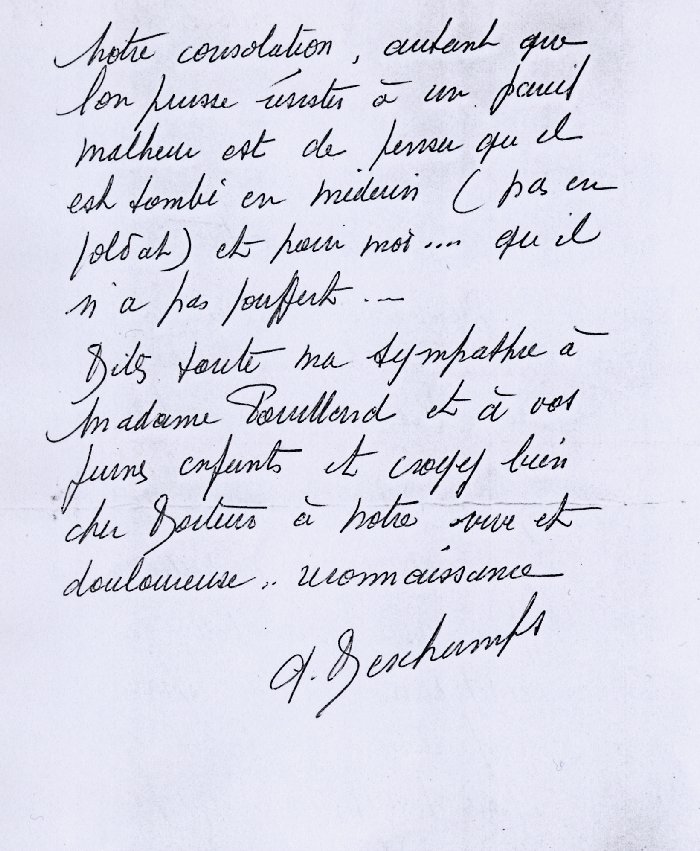 Notre consolation, autant que
l'on puisse résister à un pareil
malheur est de penser qu'il
est tombé en médecin (pas en
soldat) et pour moi.... qu'il
n'a pas souffert...
Dites toute ma sympathie à
Madame et à vos
jeunes enfants et croyez bien
cher Docteur à notre vive et
douloureuse.. reconnaissance
Deschamps